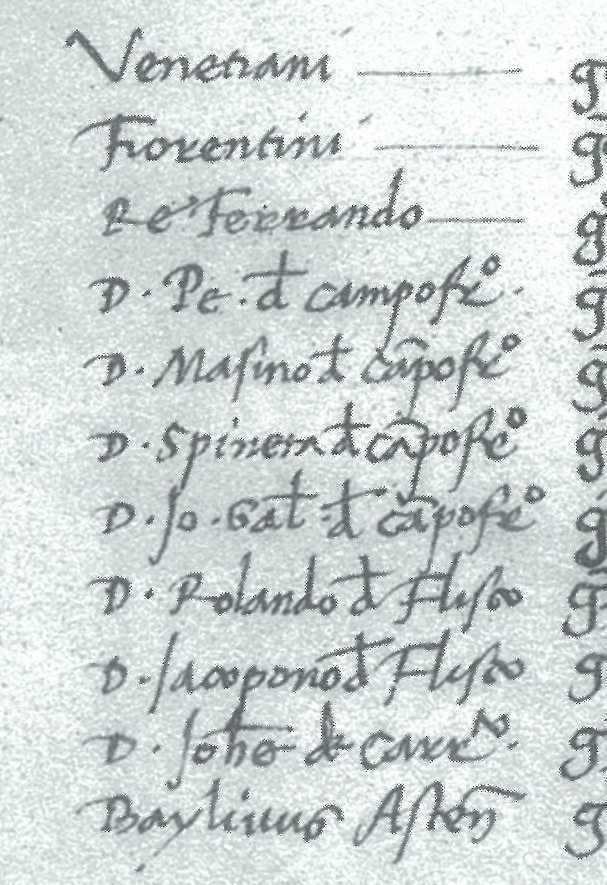 Venetiani g
Fiorentini g
Re Ferrando g
D. Pe. d campofre° g
D. Masino d cãpofre° g
D. Spineta d cãpofre° g
D. Jo. Gal. d cãpofre° g
D. Rolando d Flisco g
D. Jacopono d Flisco g
D. Johe de g
Baylivus Asteñ g